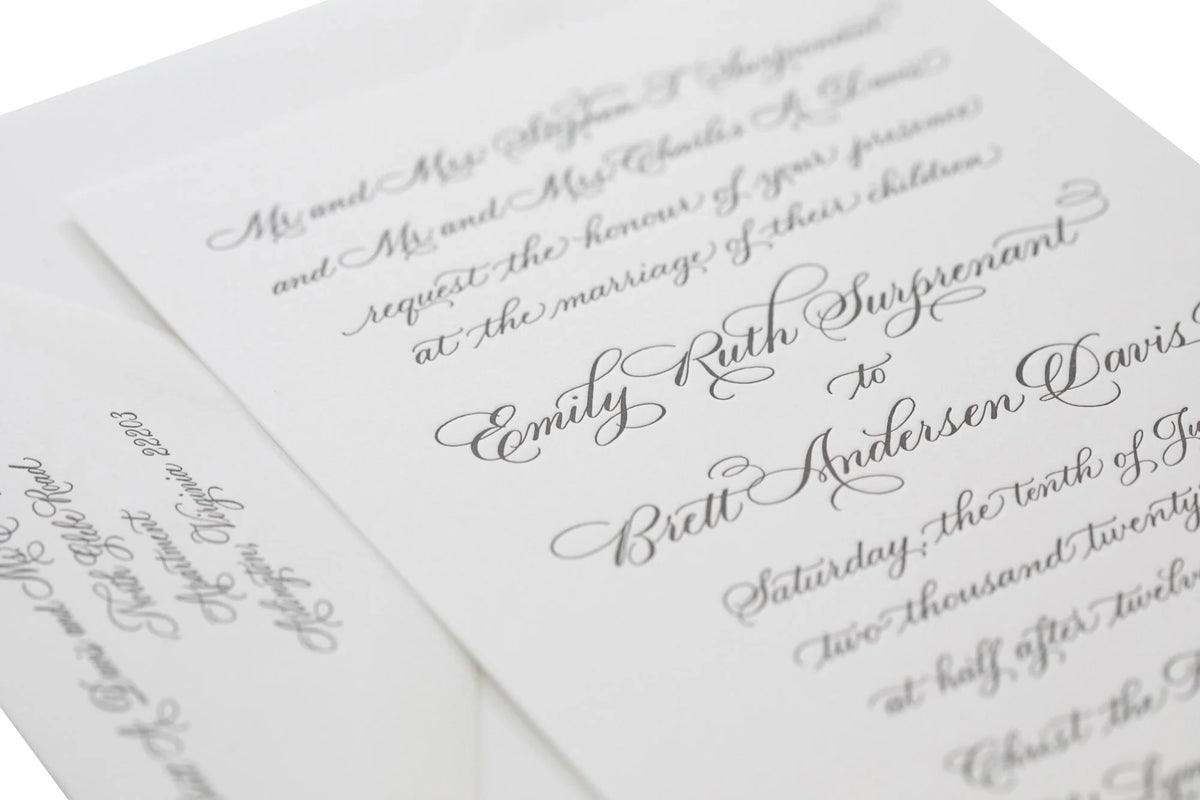 Mr. and Mrs. Stephen T. Surprenant
and Mr. and Mrs. Charles A. Davis
request the honour of your presence
at the marriage of their children
Emily Ruth Surprenant
to
Brett Andersen Davis
Saturday, the tenth of
two thousand twenty
at half after twelve
Christ the
Davis and
North Glebe Road
Apartment
Arlington, Virginia 22203